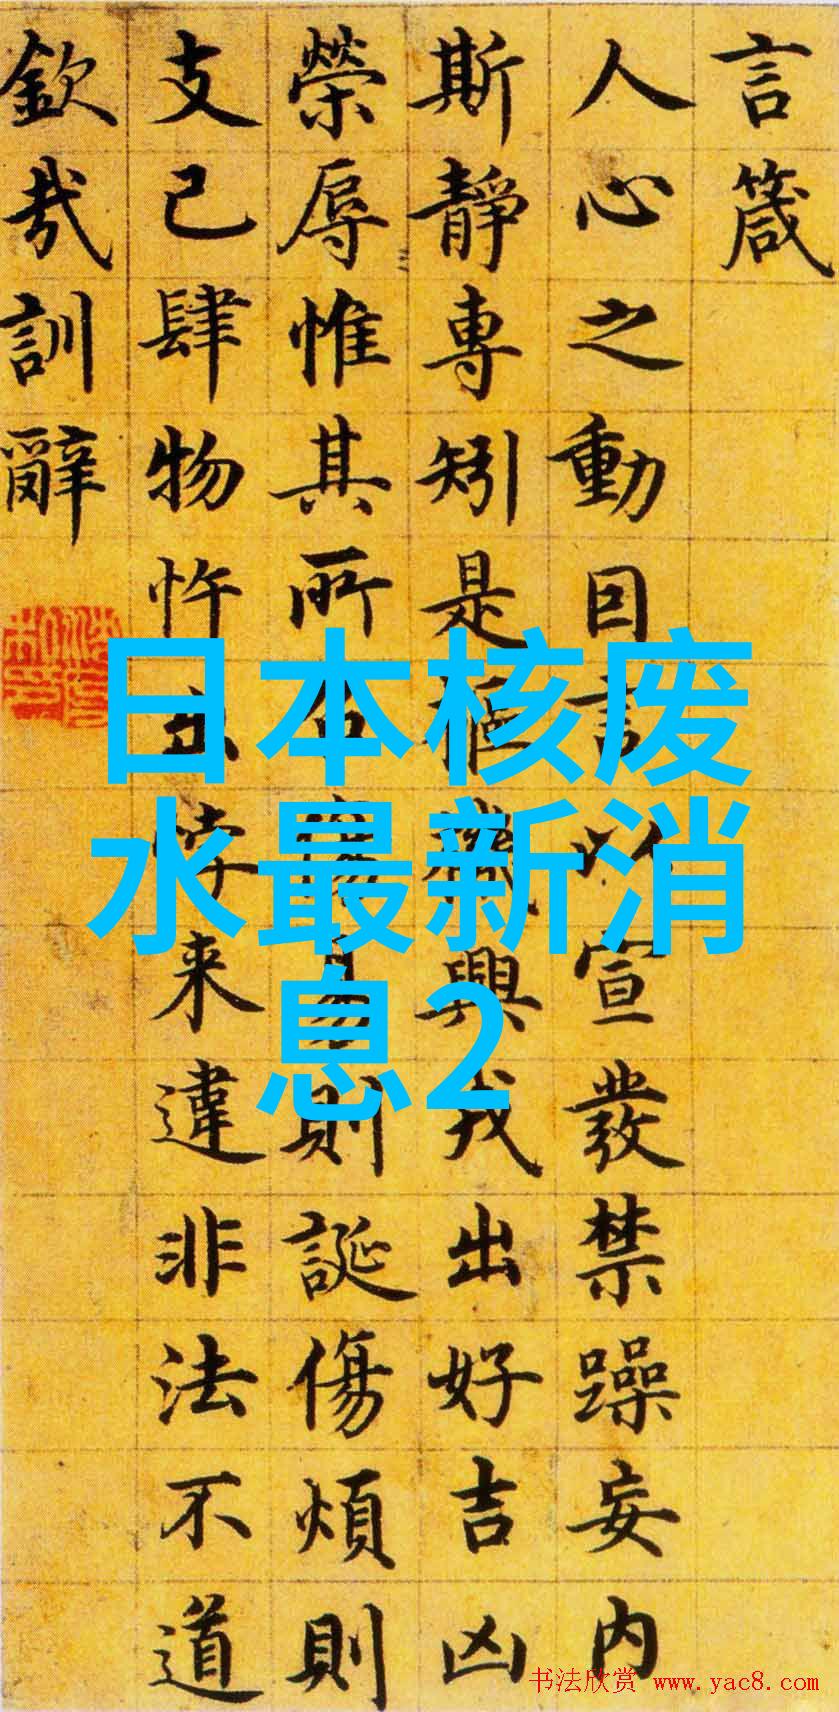 言箴
人心之動囙言以宣發禁躁妄内
斯靜專矧是樞機興戎出好吉凶
榮辱惟其所召傷易則誕傷煩則
支己肆物忤出悖来違非法不道
欽哉訓辭
日本核废
水最新消
息2
书法欣赏 www.yac8.com